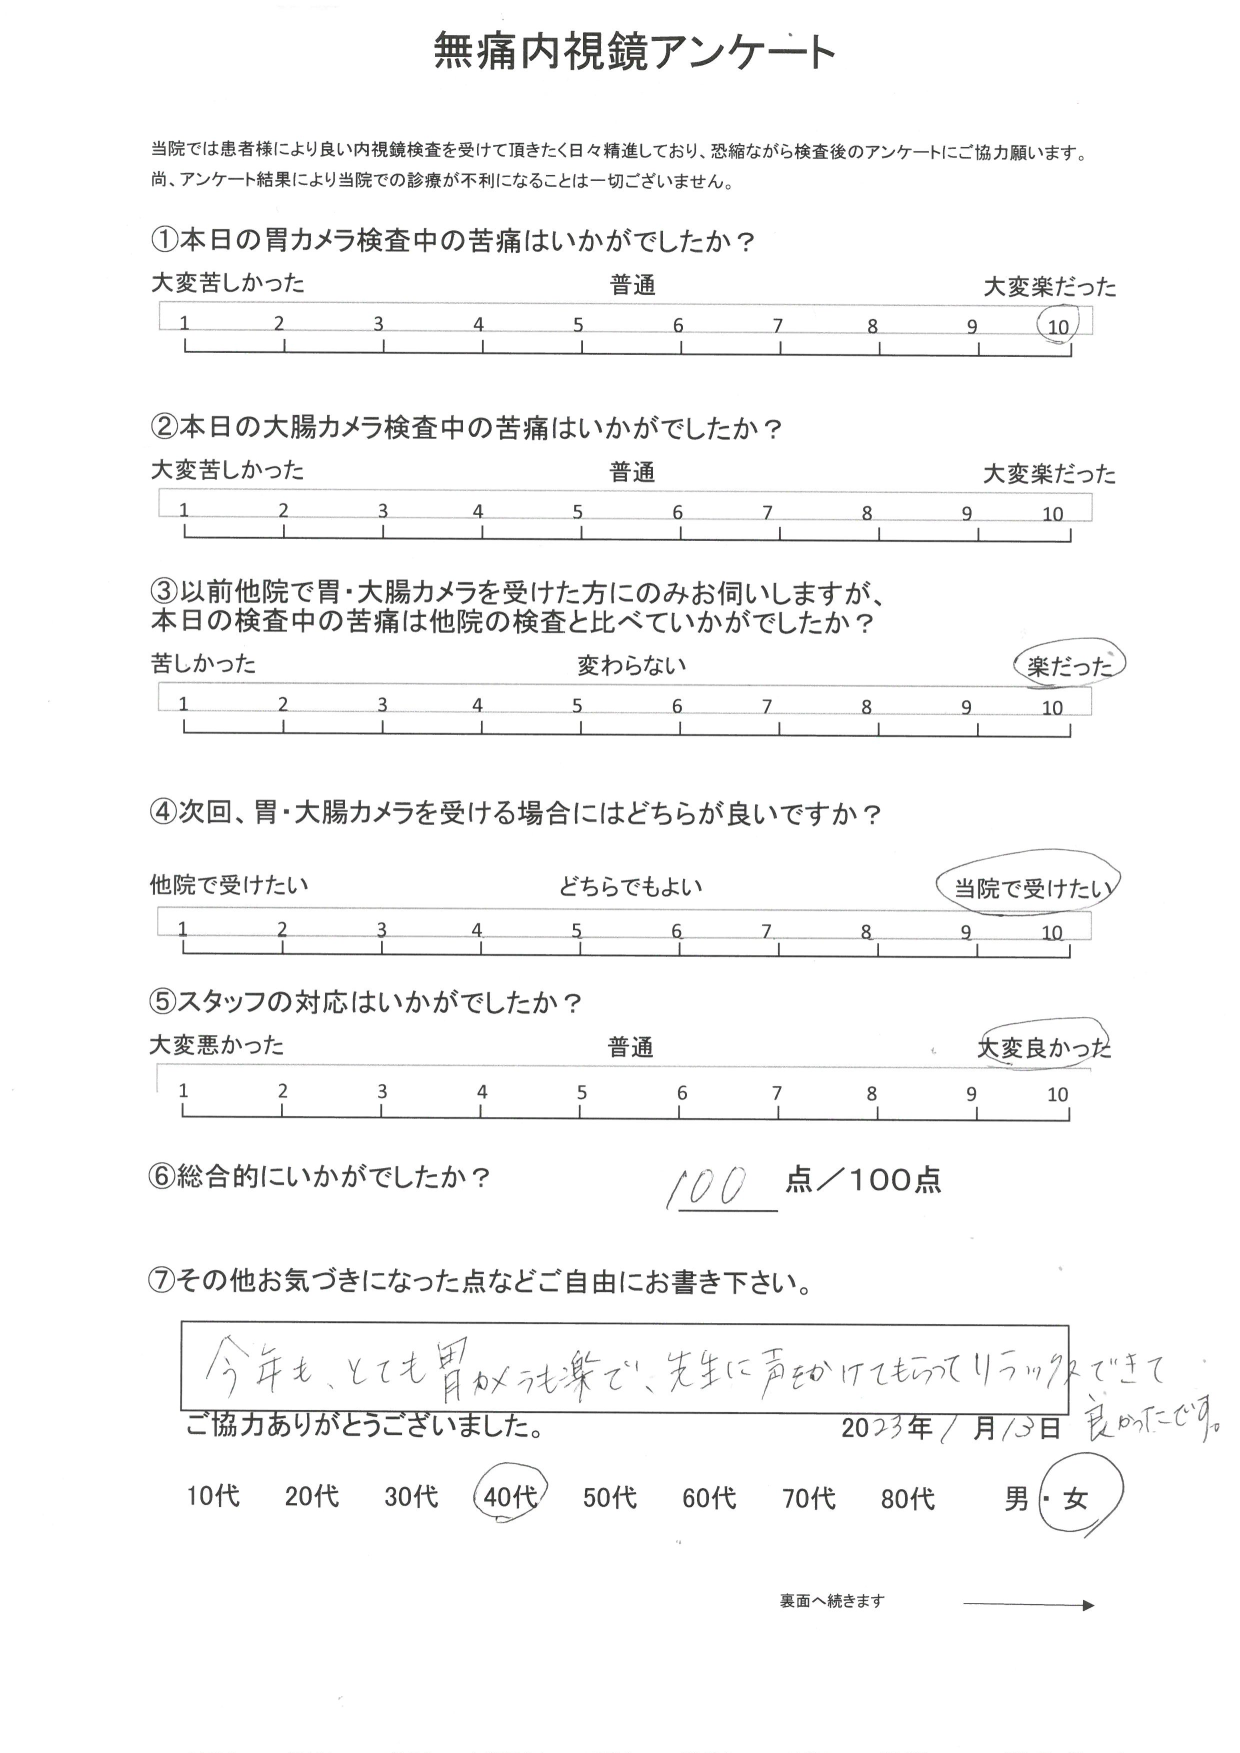 無痛内視鏡アンケート
当院では患者様により良い内視鏡検査を受けて頂きたく日々精進しており、恐縮ながら検査後のアンケートにご協力願います。
尚、アンケート結果により当院での診療が不利になることは一切ございません。
①本日の胃カメラ検査中の苦痛はいかがでしたか？
大変苦しかった 普通 大変楽だった
1 2 3 4 5 6 7 8 9 10
②本日の大腸カメラ検査中の苦痛はいかがでしたか？
大変苦しかった 普通 大変楽だった
1 2 3 4 5 6 7 8 9 10
③以前他院で胃・大腸カメラを受けた方にのみお伺いしますが、
本日の検査中の苦痛は他院の検査と比べていかがでしたか？
苦しかった 変わらない 楽だった
1 2 3 4 5 6 7 8 9 10
④次回、胃・大腸カメラを受ける場合にはどちらが良いですか？
他院で受けたい どちらでもよい 当院で受けたい
1 2 3 4 5 6 7 8 9 10
⑤スタッフの対応はいかがでしたか？
大変悪かった 普通 大変良かった
1 2 3 4 5 6 7 8 9 10
⑥総合的にいかがでしたか？ 100 点／100点
⑦その他お気づきになった点などご自由にお書き下さい。
今年も、とても胃カメラも楽で、先生に声をかけてもらってリラックスできて
良かったです。
ご協力ありがとうございました。 2023年1月13日
10代 20代 30代 40代 50代 60代 70代 80代 男・女
裏面へ続きます